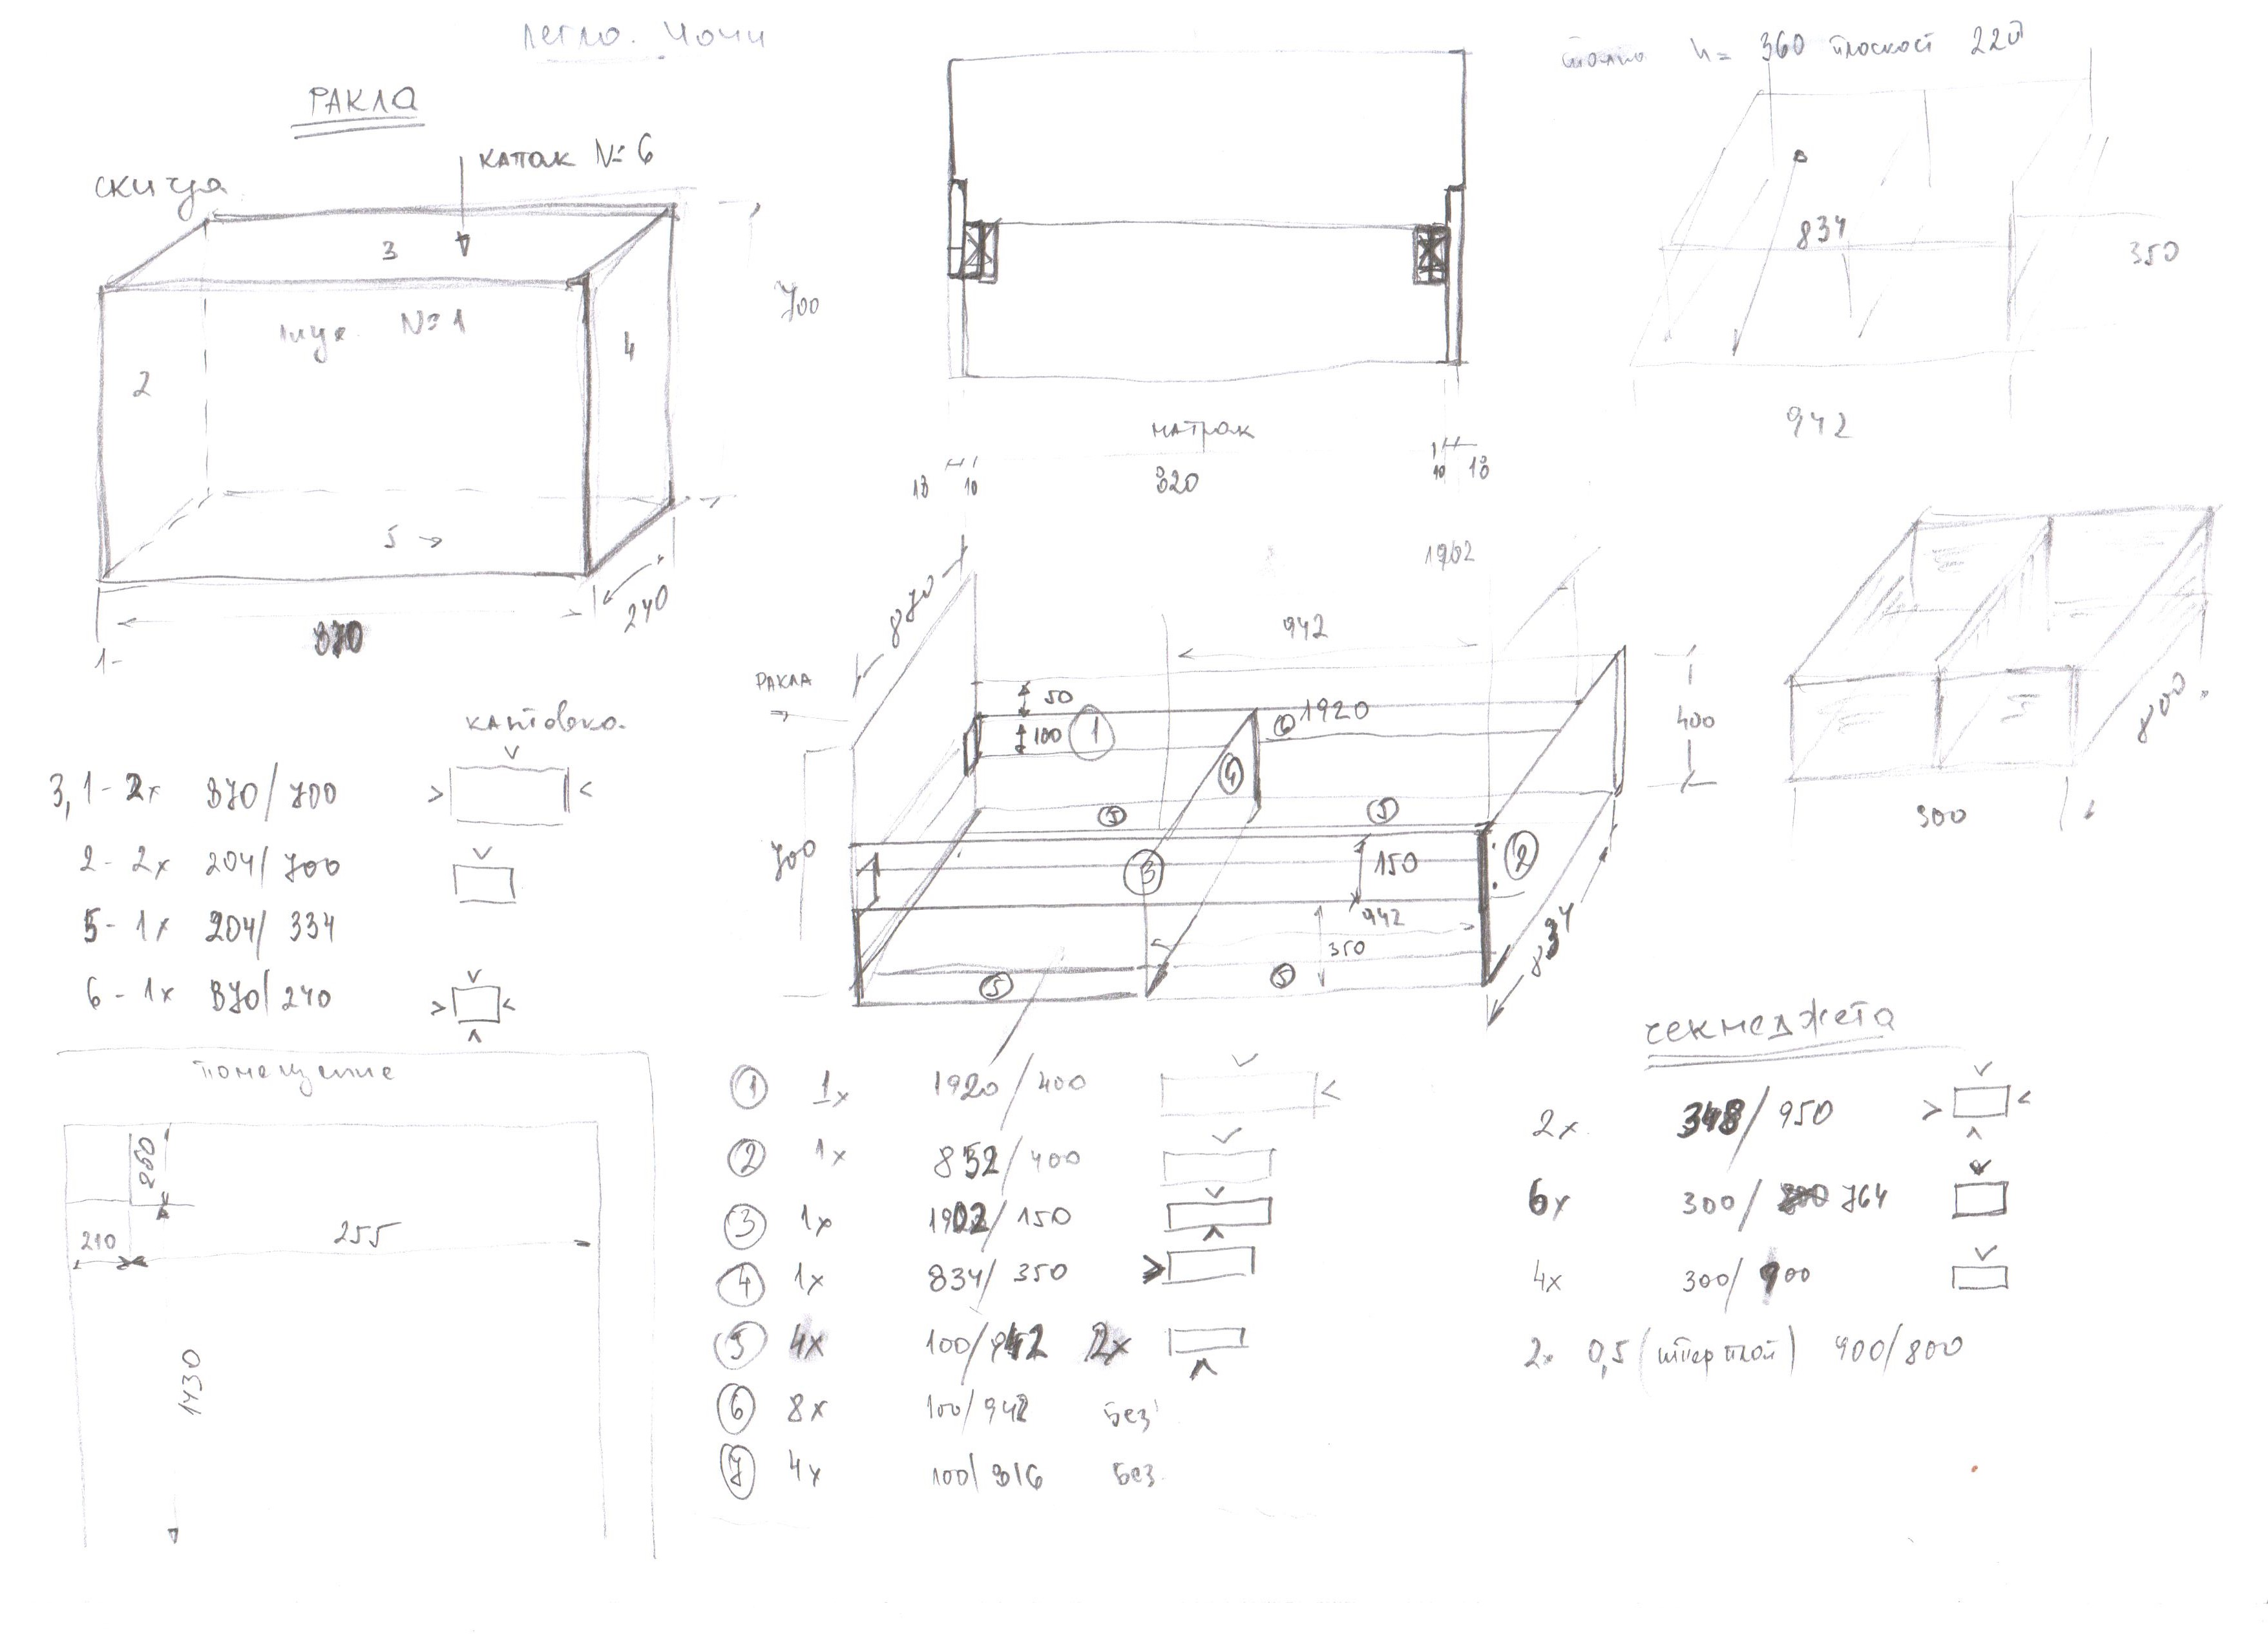 легло. Чочи
РАКЛА
скица
капак №6
3
№1
2
4
700
5 →
240
870
1-
кантовка.
3, 1 - 2x 870/700
2 - 2x 204/700
5 - 1x 204/334
6 - 1x 870/240
помещение
250
210
255
1430
матрак
18 10
820
10 18
h = 360 плоскост 220
834
350
942
870
1902
942
РАКЛА
50
100
1
6
1920
4
400
5
5
700
3
150
2
942
350
834
5
5
800
300
1 1x 1920/400
2 1x 852/400
3 1x 1902/150
4 1x 834/350
5 4x 100/942 2x
6 8x 100/942 Без
7 4x 100/816 Без.
чекмеджета
2x 348/950
6x 300/764
4x 300/900
2x 0,5 (шперплой) 900/800